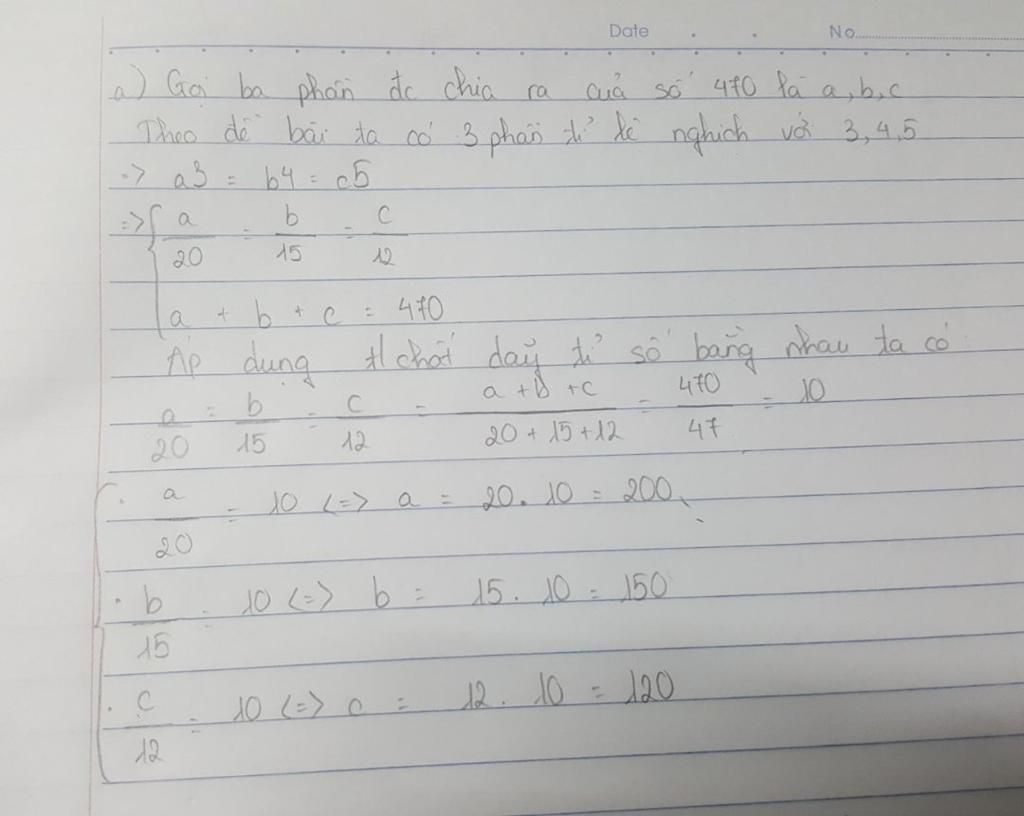 Date . . No
a) Gọi ba phần đc chia ra của số 470 là a, b, c
Theo đề bài ta có 3 phần tỉ lệ nghịch với 3, 4, 5
=> a3 = b4 = c5
=> { a/20 = b/15 = c/12
a + b + c = 470
Áp dụng t/chất dãy tỉ số bằng nhau ta có
a/20 = b/15 = c/12 = (a+b+c)/(20+15+12) = 470/47 = 10
. a/20 = 10 <=> a = 20. 10 = 200
. b/15 = 10 <=> b = 15. 10 = 150
. c/12 = 10 <=> c = 12. 10 = 120